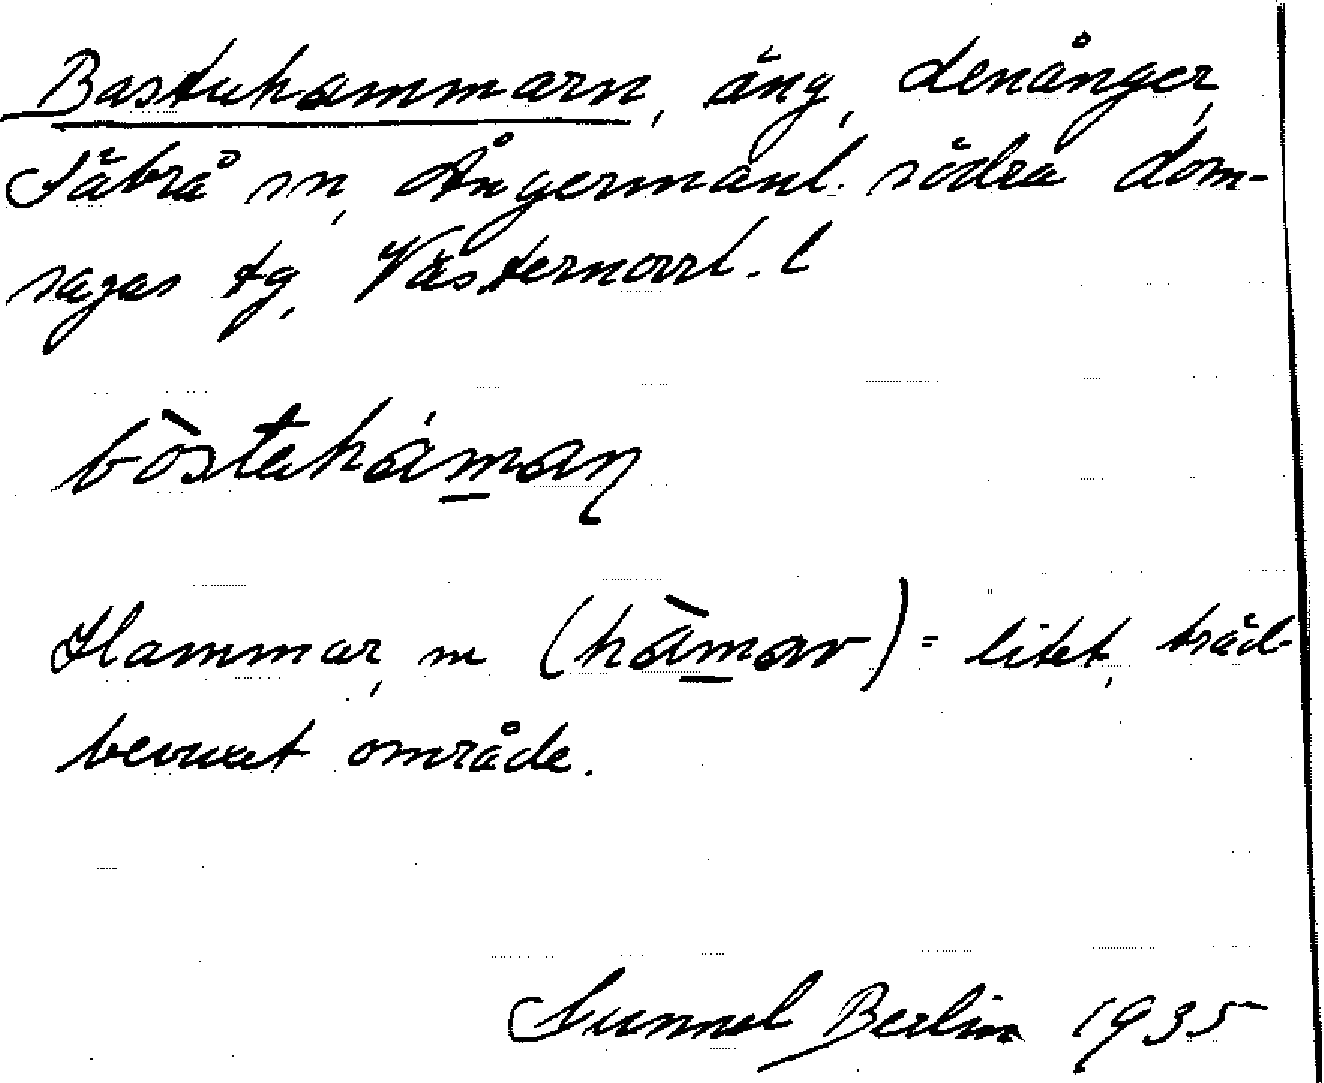 Bastuhammarn, äng, Denånger,
Säbrå sn, Ångermanl. södra dom-
sagas tg, Västernorrl. l
bòstehámaɳ
Hammar, m (hàmar) = litet, träd-
bevuxet område.
Sunnel Berlin 1935